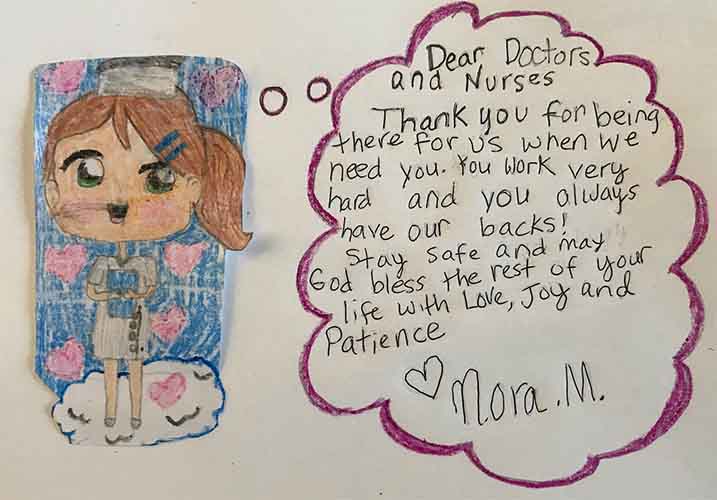 Dear Doctors
and Nurses
Thank you for being
there for us when we
need you. You work very
hard and you always
have our backs!
Stay safe and may
God bless the rest of your
life with Love, Joy and
Patience
♡ Nora .M.